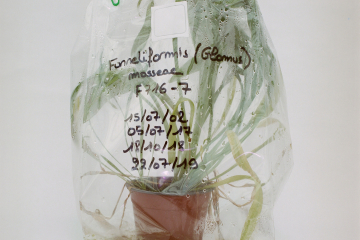 Funneliformis (Glomus)
mosseae
F716-7
15/07/02
05/07/17
18/10/18
22/07/19